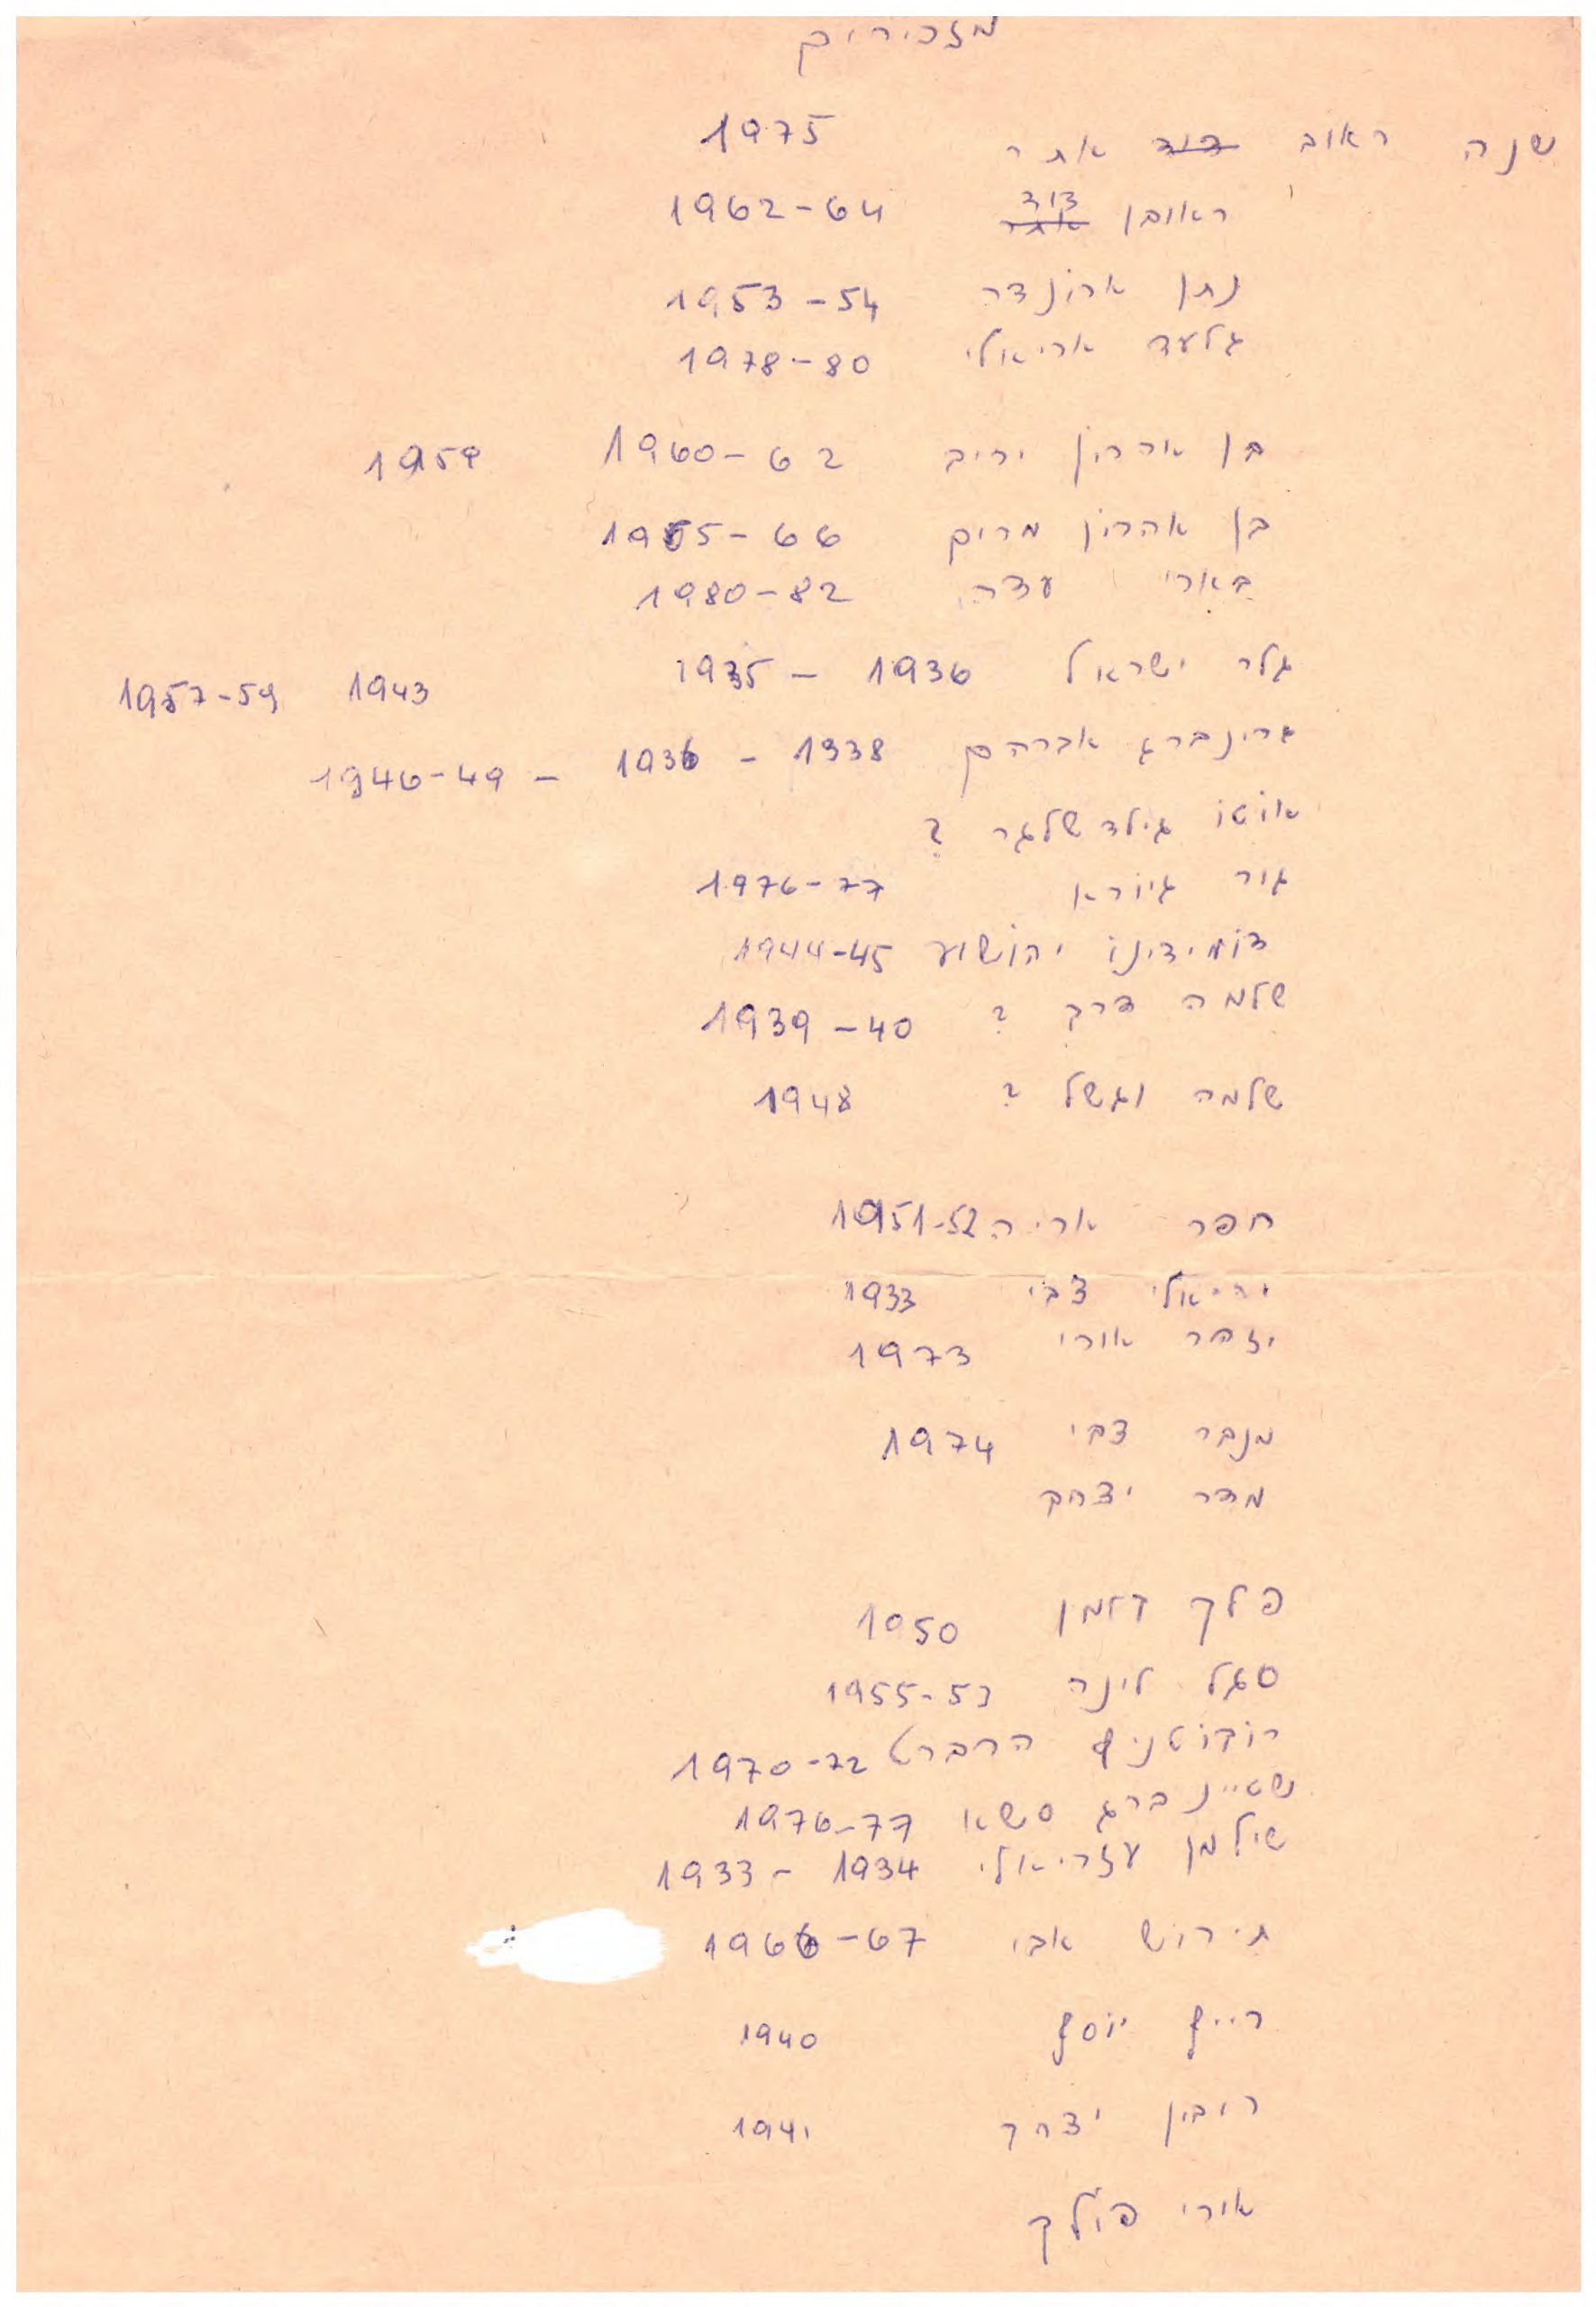 מזכירים
שנה ראוב דוד אתר 1975
ראובן אתר דוד 1962-64
נתן ארונדר 1953-54
גלעד אריאלי 1978-80
בן אהרון יריב 1960-62 1959
בן אהרון מרים 1965-66
בארי עדה 1980-82
גלר ישראל 1935 - 1936 1943 1957-59
גרינברג אברהם 1936 - 1938 - 1946-49
אוטו גילדשלגר ?
גור גיורא 1976-77
דומידינו יהושוע 1944-45
שלמה דרך ? 1939-40
שלמה וגשל ? 1948
חפר אריה 1951-52
יריאלי צבי 1933
יזהר אורי 1973
מנבר צבי 1974
מדר יצחק
פלק 1950
סגל לינה 1955-53
הרברט 1970-72
שטיינברג סשא 1976-77
שילמן עזריאלי 1933 - 1934
תירוש אבי 1966-67
רייף יוסף 1940
רובין יצחק 1941
אורי פולק